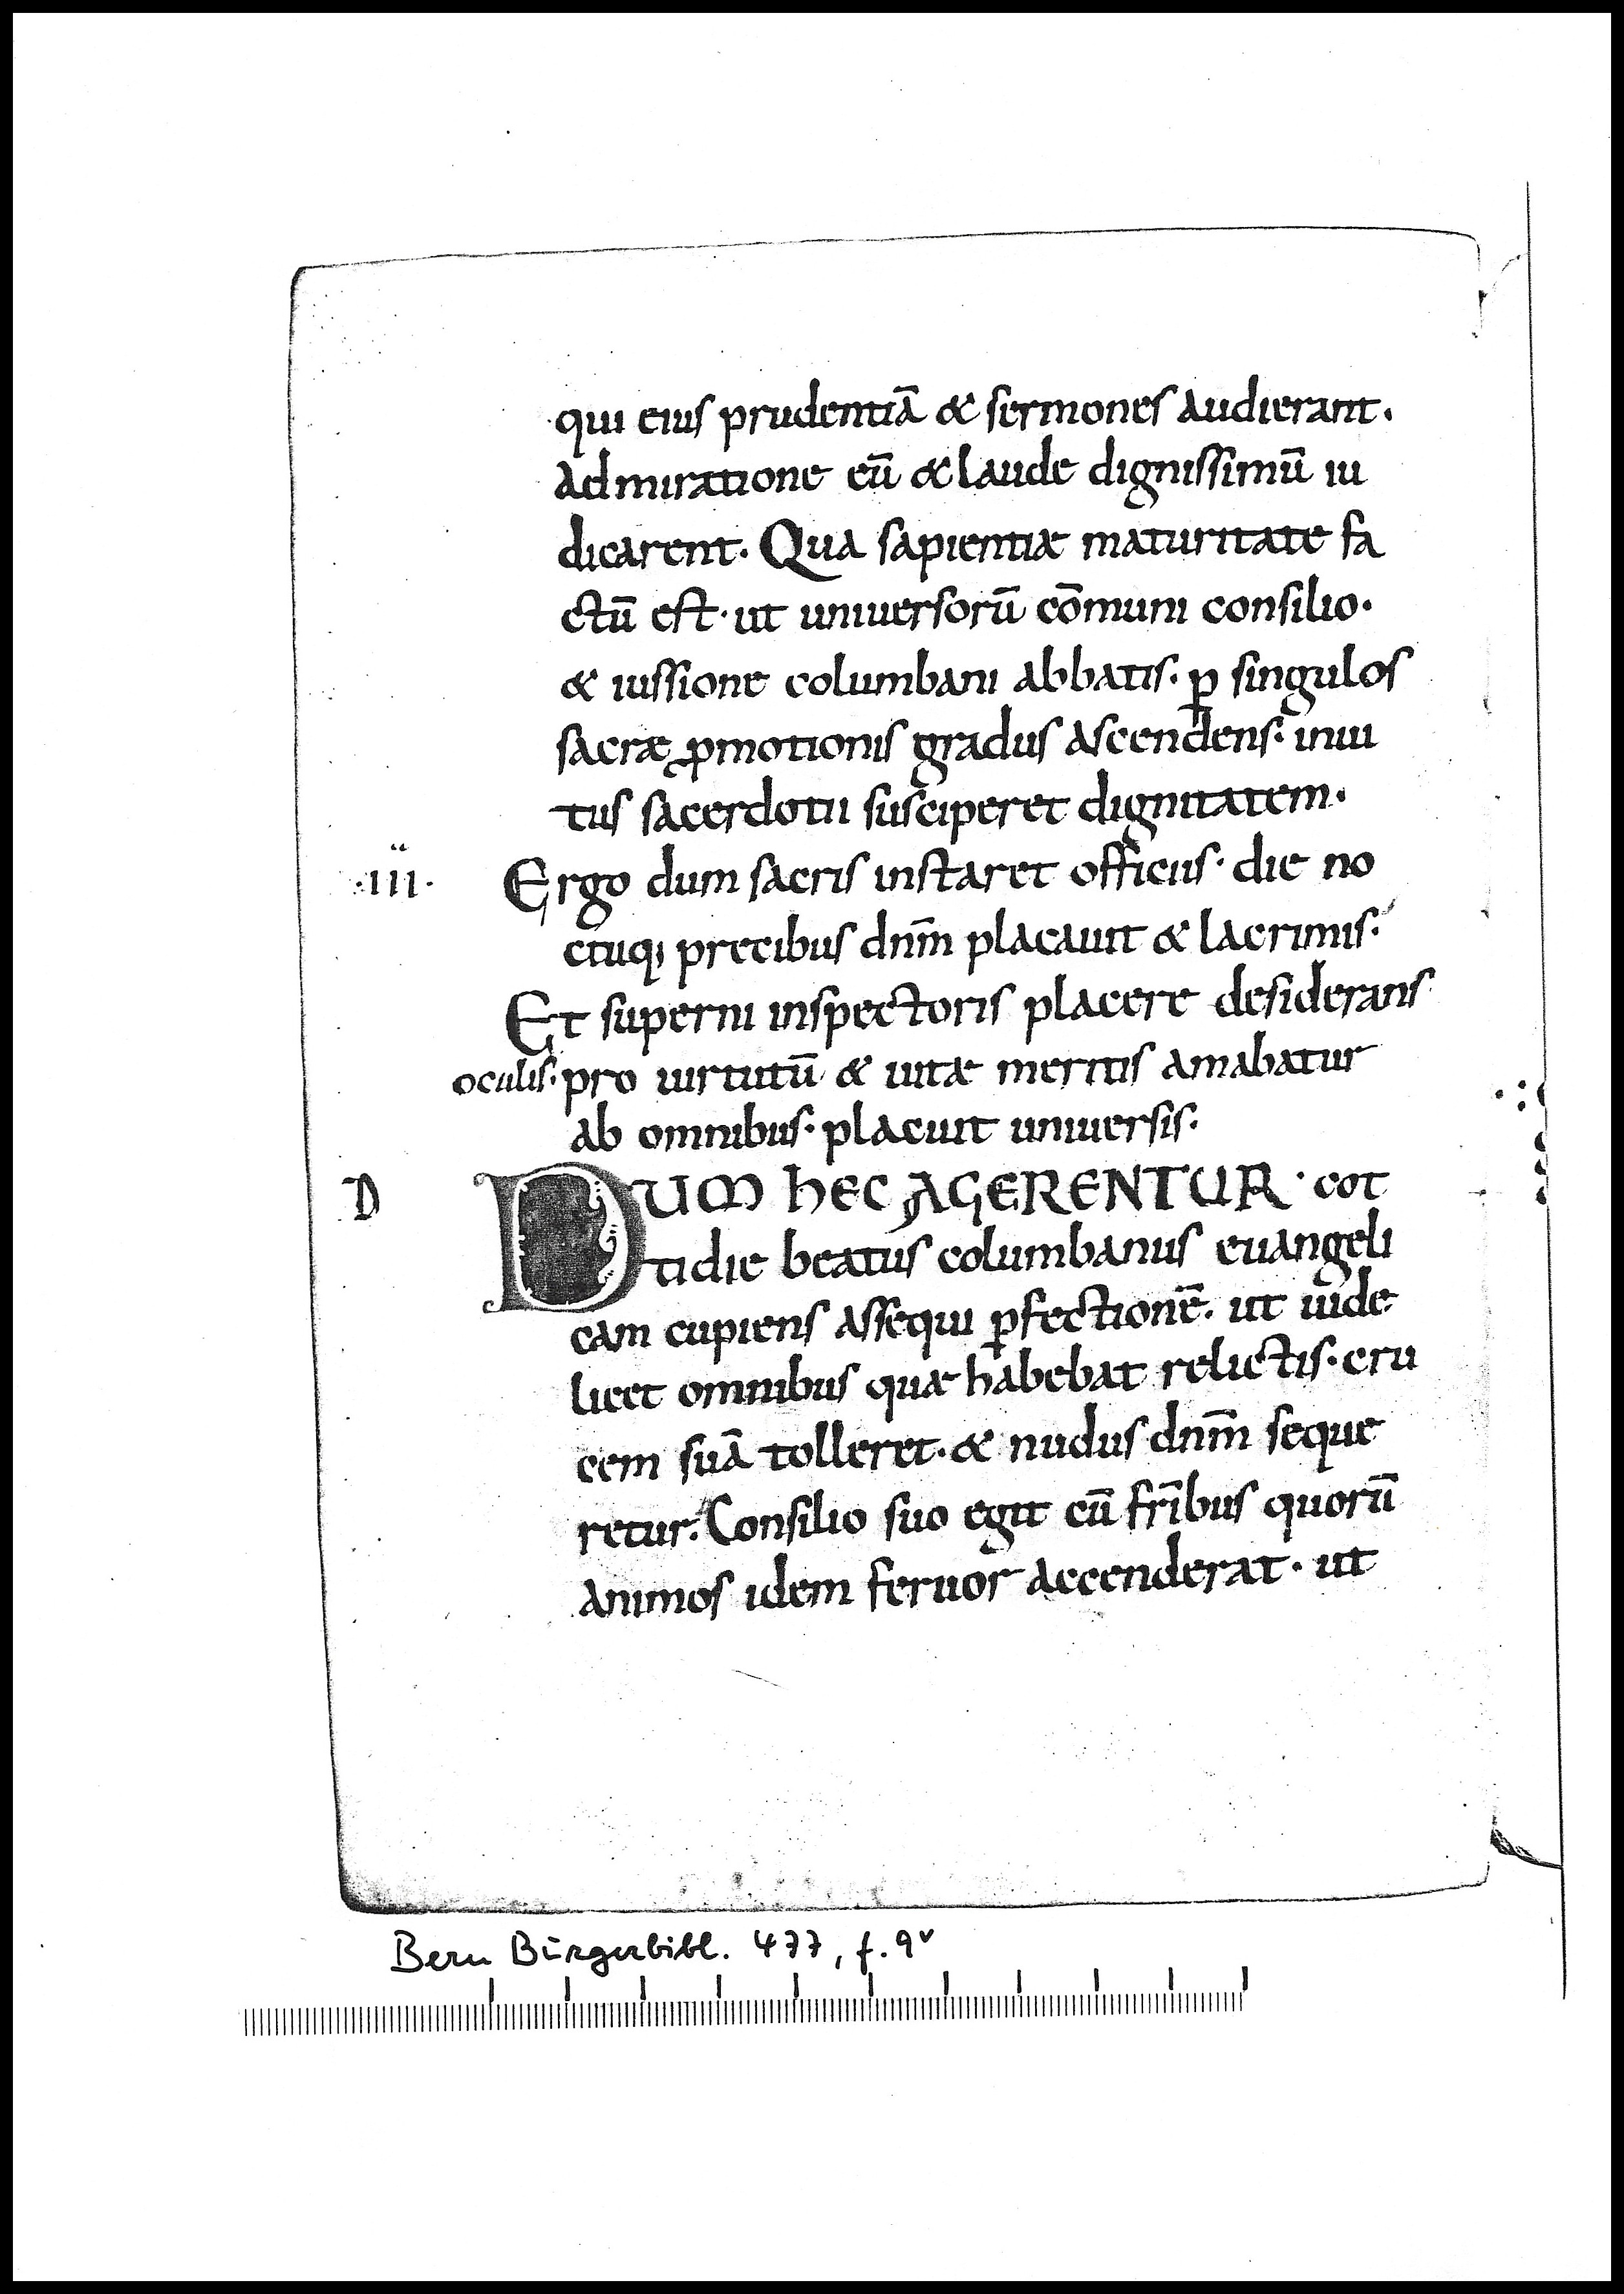 qui eius prudentiā & sermones audierant.
admiratione eū & laude dignissimū iu
dicarent. Qua sapientiæ maturitate fa
ctū est· ut uniuersorū cōmuni consilio·
& iussione columbani abbatis· ꝑ singulos
sacræ ꝓmotionis gradus ascendens· inui
tus sacerdotii susciperet dignitatem·
·iii· Ergo dum sacris instaret officiis· die no
ctuq; precibus dnm̄ placauit & lacrimis·
Et superni inspectoris placere desiderans
oculis· pro uirtutū & uitæ meritis amabatur
ab omnibus· placuit uniuersis·
D DUM HEC AGERENTUR· cot
tidie beatus columbanus euangeli
cam cupiens assequi ꝑfectionē· ut uide
licet omnibus quæ habebat relictis· cru
cem suā tolleret· & nudus dnm̄ seque
retur· Consilio suo egit cū fr̄ibus quorū
animos idem feruor accenderat· ut
Bern Bürgerbibl. 477, f. 9v